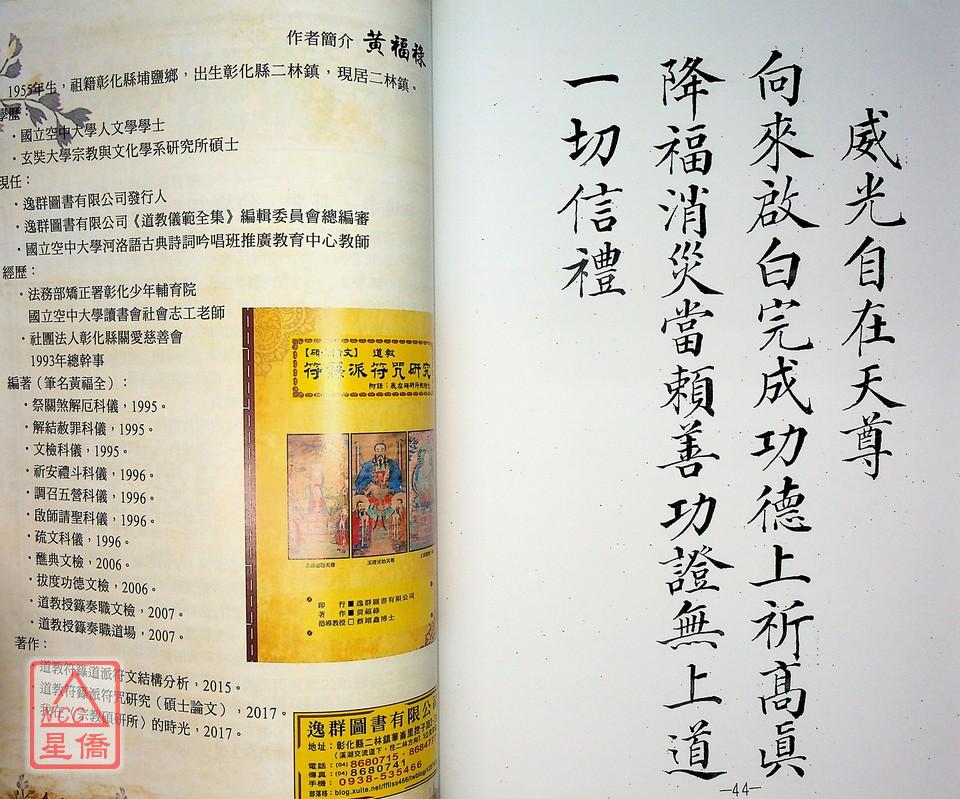 作者簡介 黃福祿
1955年生，祖籍彰化縣埔鹽鄉，出生彰化縣二林鎮，現居二林鎮。
學歷：
．國立空中大學人文學學士
．玄奘大學宗教與文化學系研究所碩士
現任：
．逸群圖書有限公司發行人
．逸群圖書有限公司《道教儀範全集》編輯委員會總編審
．國立空中大學河洛語古典詩詞吟唱班推廣教育中心教師
經歷：
．法務部矯正署彰化少年輔育院
國立空中大學讀書會社會志工老師
．社團法人彰化縣關愛慈善會
1993年總幹事
編著（筆名黃福全）：
．祭關煞解厄科儀，1995。
．解結赦罪科儀，1995。
．文檢科儀，1995。
．祈安禮斗科儀，1996。
．調召五營科儀，1996。
．啟師請聖科儀，1996。
．疏文科儀，1996。
．醮典文檢，2006。
．拔度功德文檢，2006。
．道教授籙奏職文檢，2007。
．道教授籙奏職道場，2007。
著作：
．道教符籙道派符文結構分析，2015。
．道教符籙派符咒研究（碩士論文），2017。
．我在〈宗教碩研所〉的時光，2017。
【碩士論文】 道教
符籙派符咒研究
印 行■逸群圖書有限公司
著 作■黃福祿
指導教授□蔡翊鑫博士
逸群圖書有限公
地址：彰化縣二林鎮華崙里挖子路
電話：(04)8680715．868477
傳真：(04)8680741
手機：0938-535466
部落格：blog.xuite.net/ffliss466/twblog
NCC
星僑
威光自在天尊
向來啟白完成功德上祈高眞
降福消災當賴善功證無上道
一切信禮
—44—